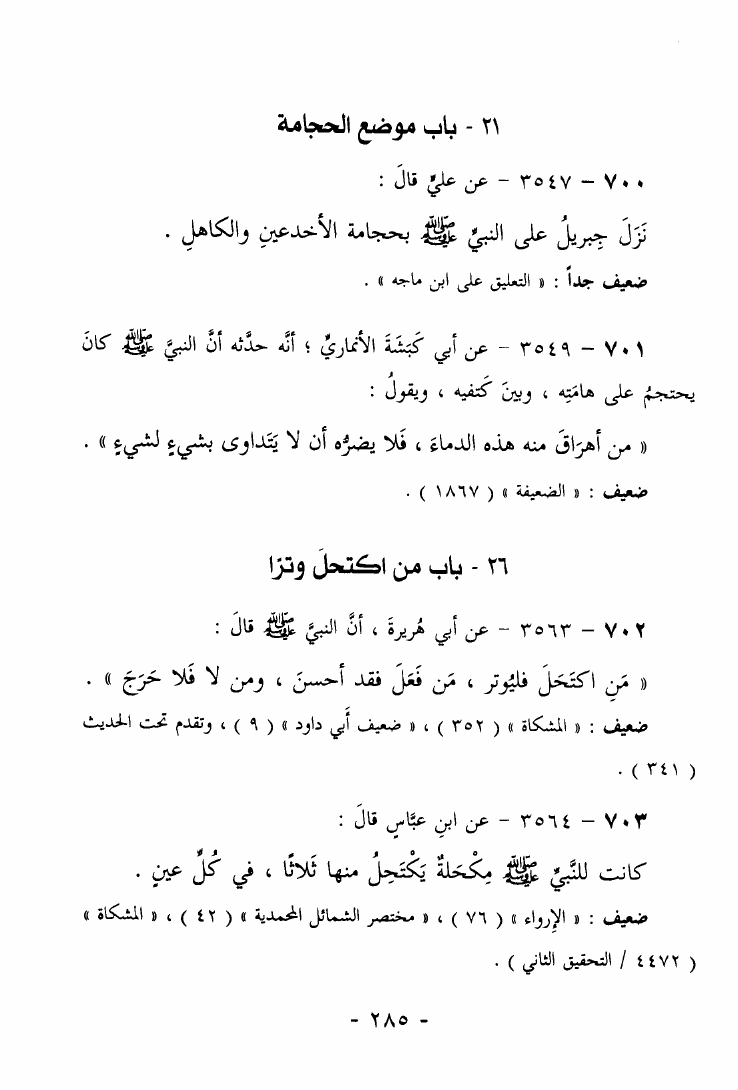 ٢١ - باب موضع الحجامة
٧٠٠ – ٣٥٤٧ – عن عليٍّ قالَ :
نَزَلَ جِبريلُ على النبيِّ ﷺ بحجامة الأخدعينِ والكاهلِ .
ضعيف جداً : « التعليق على ابن ماجه » .
٧٠١ – ٣٥٤٩ – عن أبي كَبَشَةَ الأنماريِّ ؛ أنَّه حدَّثه أنَّ النبيَّ ﷺ كانَ
يحتجمُ على هامَتِه ، وبينَ كَتفيه ، ويقولُ :
« من أهرَاقَ منه هذه الدماءَ ، فَلا يضرُّه أن لا يَتَداوى بشيءٍ لشيءٍ » .
ضعيف : « الضعيفة » ( ١٨٦٧ ) .
٢٦ - باب من اكتحلَ وترًا
٧٠٢ – ٣٥٦٣ – عن أبي هُريرةَ ، أنَّ النبيَّ ﷺ قالَ :
« مَنِ اكتَحَلَ فليُوتر ، مَن فَعَلَ فقد أحسنَ ، ومن لا فَلا حَرَجَ » .
ضعيف : « المشكاة » ( ٣٥٢ ) ، « ضعيف أَبي داود » ( ٩ ) ، وتقدم تحت الحديث
( ٣٤١ ) .
٧٠٣ – ٣٥٦٤ – عن ابنِ عبَّاسٍ قالَ :
كانت للنَّبيِّ ﷺ مِكْحَلةٌ يَكْتَحِلُ منها ثَلاثًا ، في كُلِّ عينٍ .
ضعيف : « الإرواء » ( ٧٦ ) ، « مختصر الشمائل المحمدية » ( ٤٢ ) ، « المشكاة »
( ٤٤٧٢ / التحقيق الثاني ) .
- ٢٨٥ -